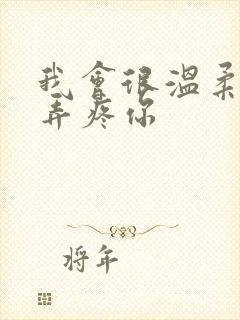 我會很溫柔
弄疼你
將年